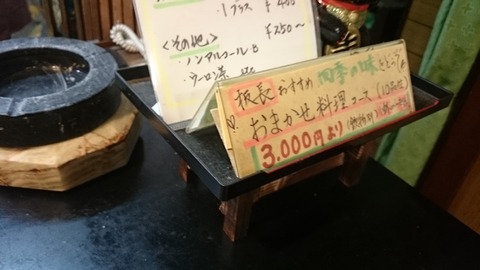 ・1プラス ¥400
¥250〜
<その他>
・ノンアルコールB
・ウーロン茶
板長 おすすめ 四季の味をどうぞ
おまかせ料理コース
3.000円より